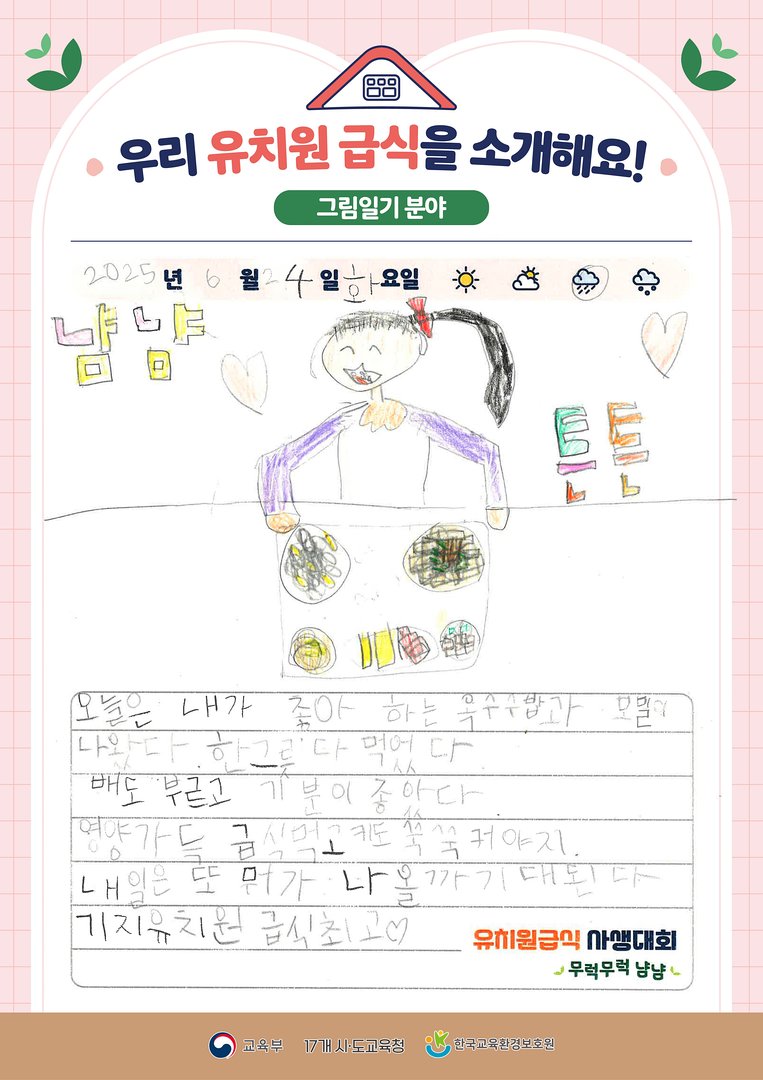 우리 유치원 급식을 소개해요!
그림일기 분야
2025년 6월 24일 화요일
냠냠
튼튼
오늘은 내가 좋아 하는 옥수수밥과 모밀이
나왔다. 한그릇 다 먹었다
배도 부르고 기분이 좋았다
영양가득 급식먹고 키도 쑥쑥 커야지.
내일은 또 뭐가 나올까 기대된다
기지유치원 급식최고♡
유치원급식 사생대회
무럭무럭 냠냠
교육부 17개 시·도교육청 한국교육환경보호원